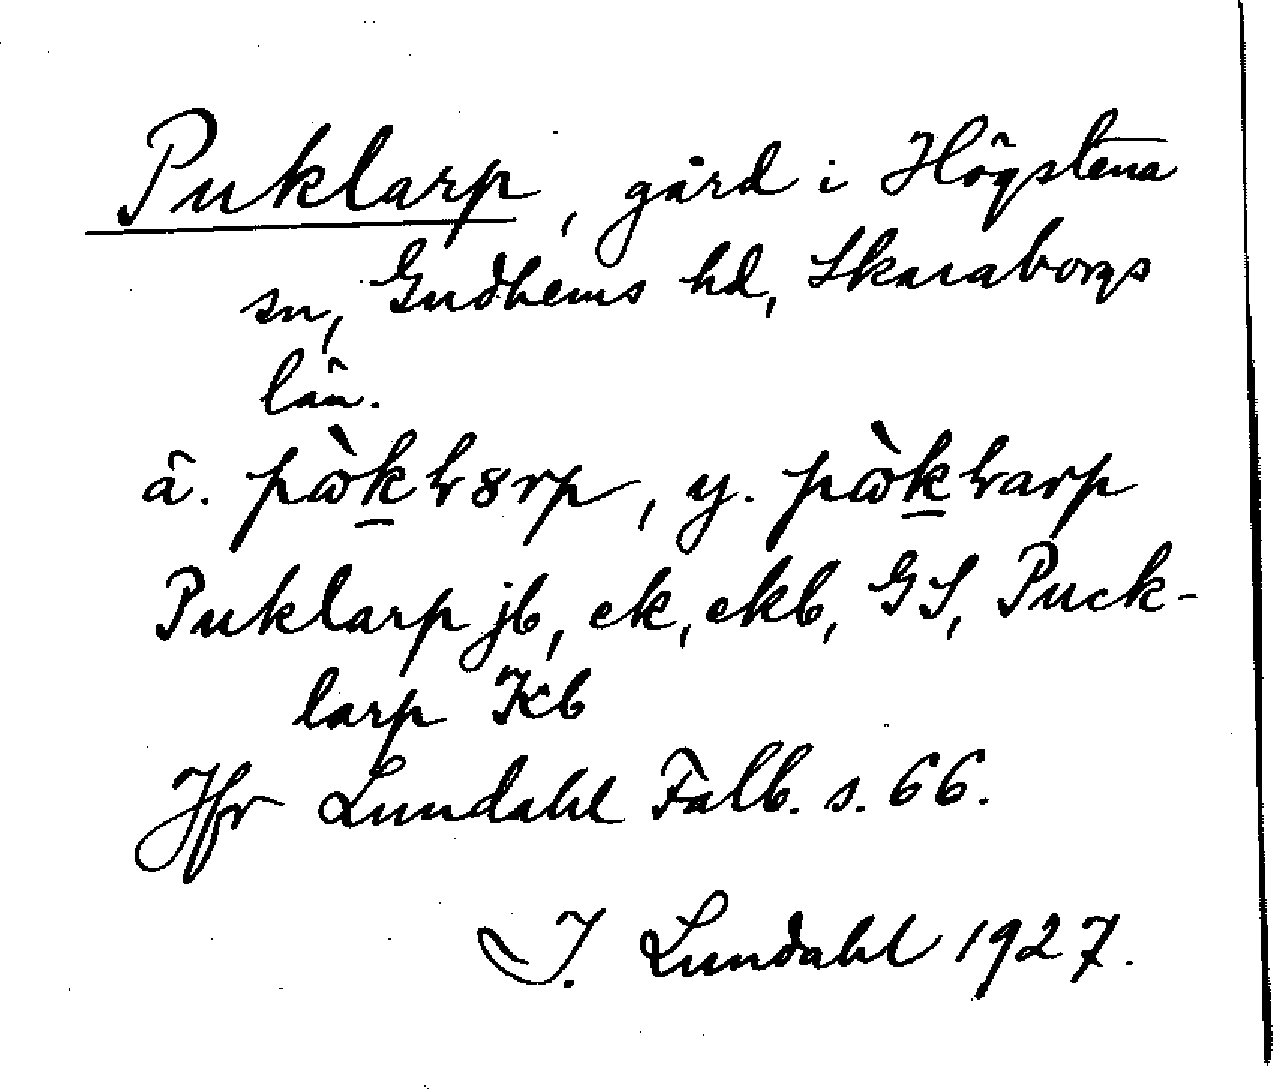 Puklarp, gård i Högstena
sn, Gudhems hd, Skaraborgs
län.
ä. pὼk
Puklarp jb, ek, ekb, GS, Puck-
larp Kb
Jfr Lundahl Falb. s. 66.
I. Lundahl 1927.